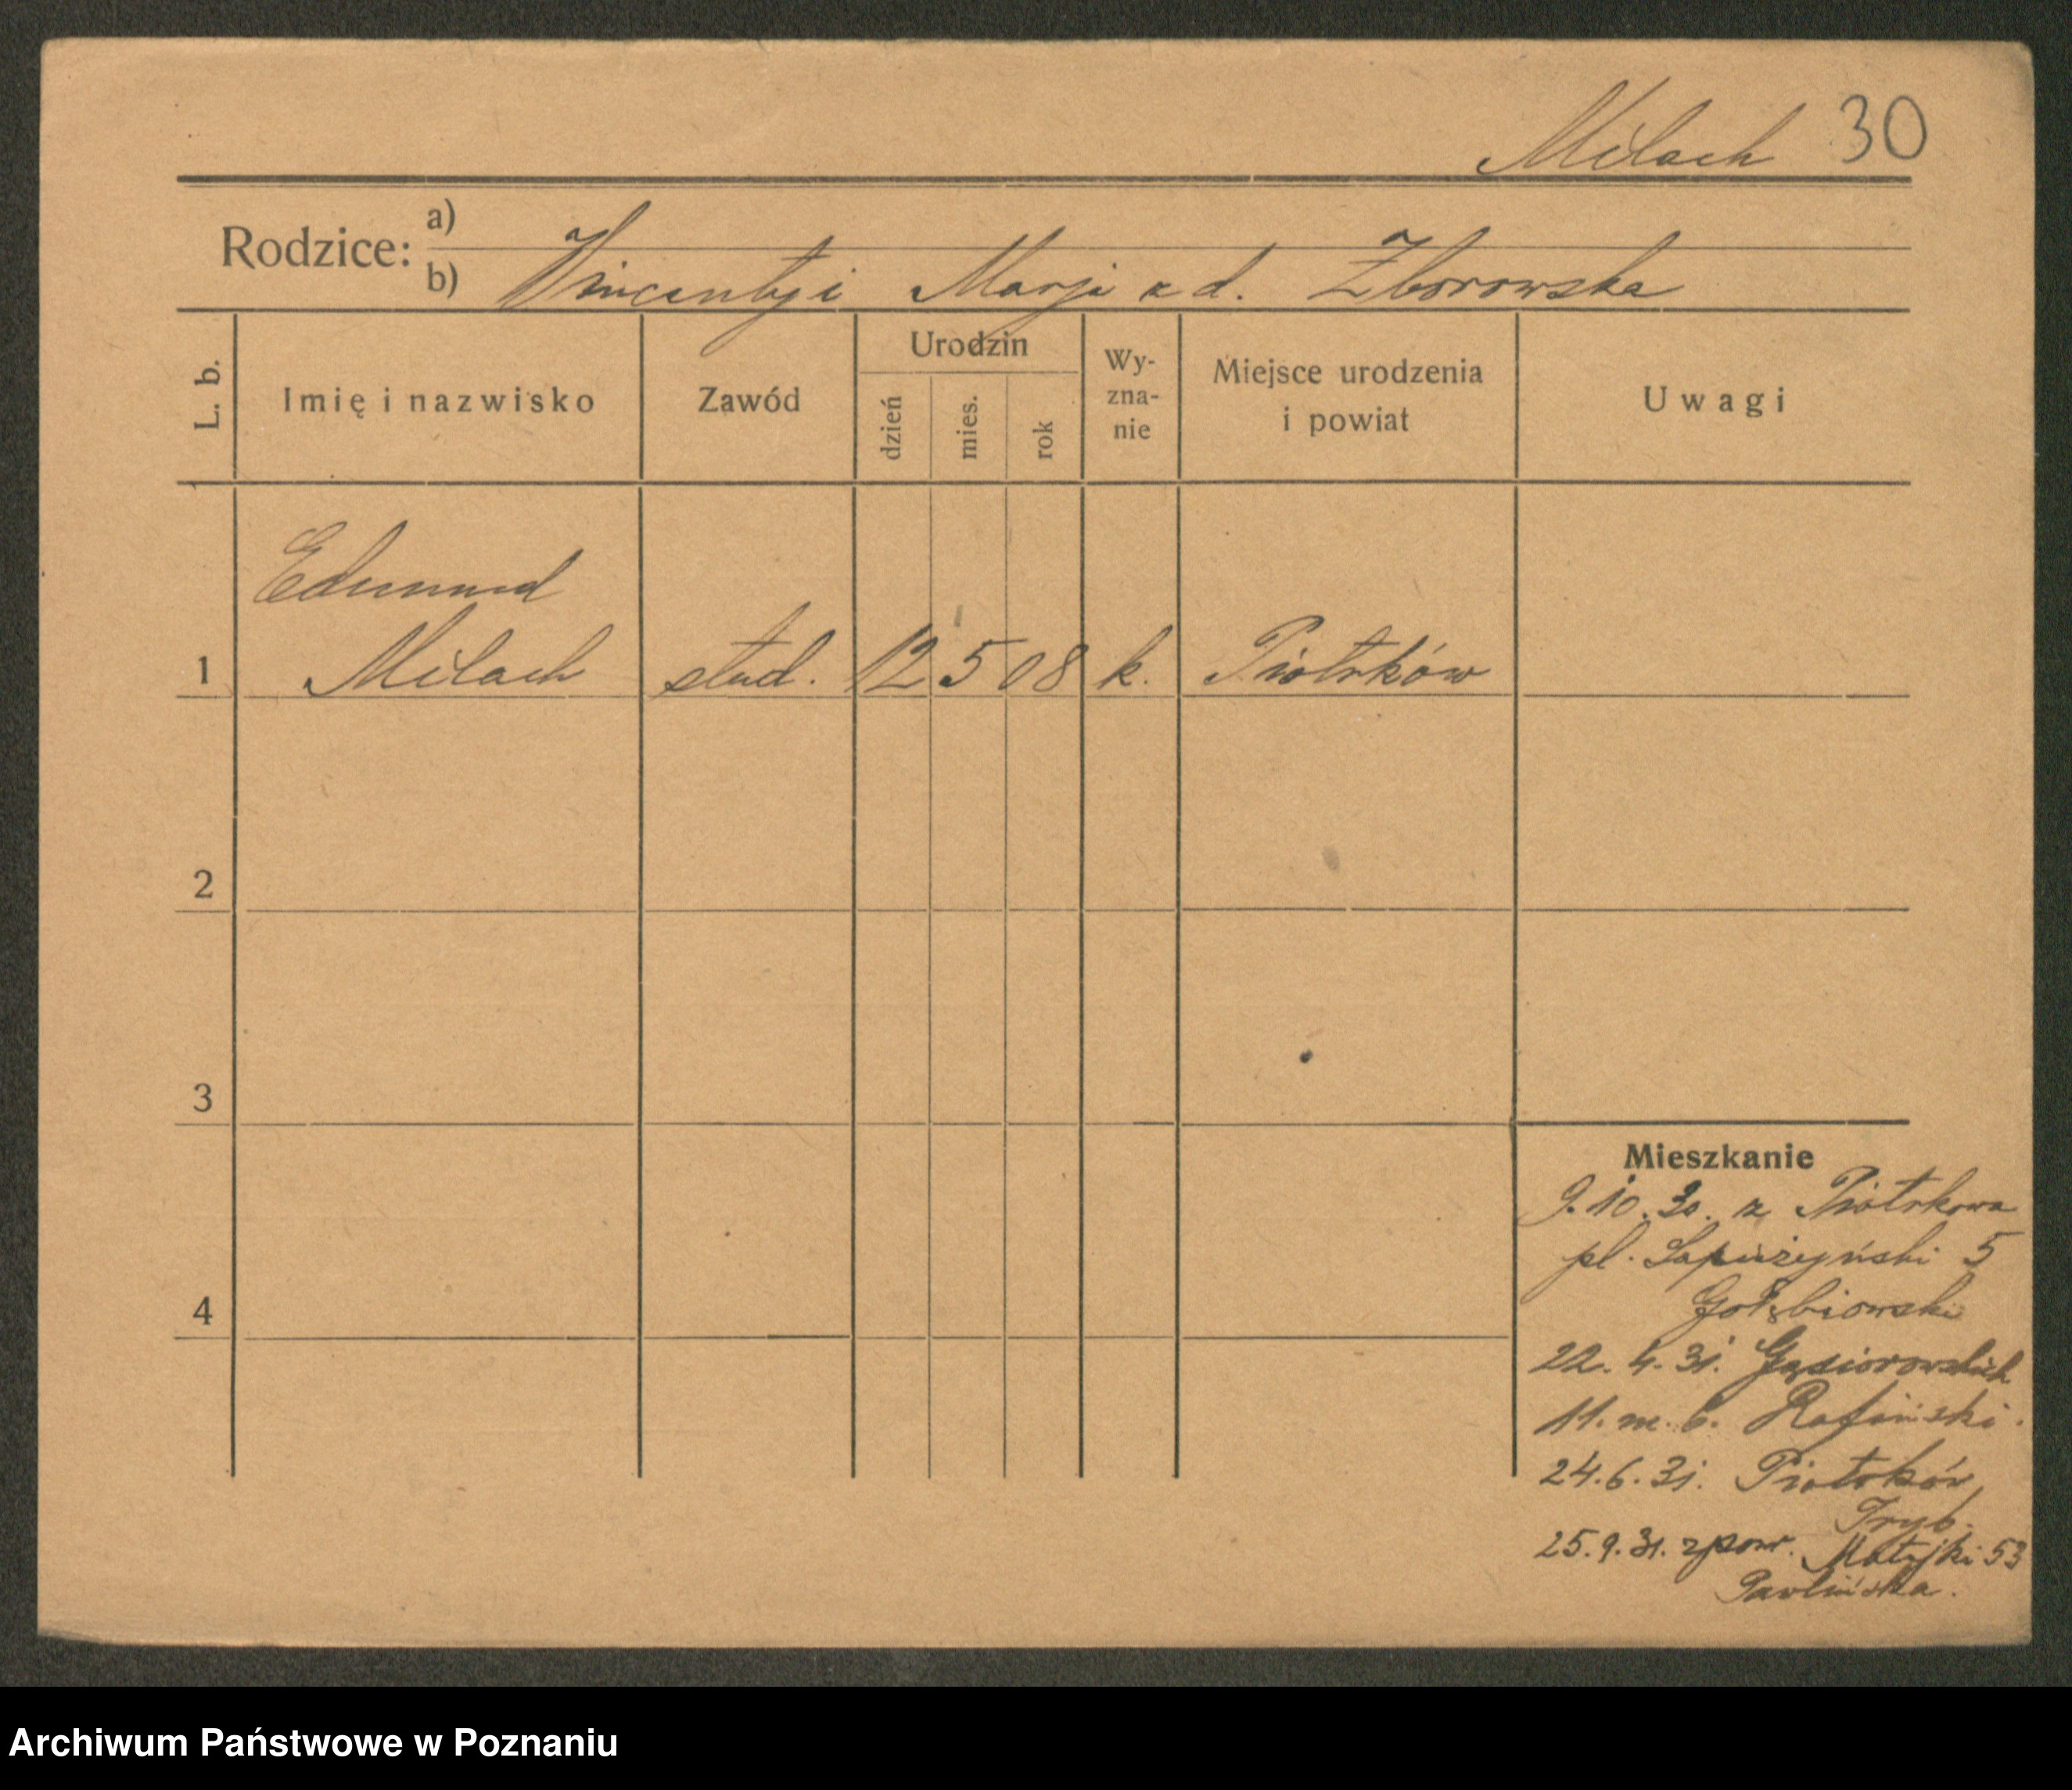 Milach 30
Rodzice:
a)
b) Wincenty i Marja z d. Zborowska
L. b.
Imię i nazwisko
Zawód
Urodzin
dzień
mies.
rok
Wy-
zna-
nie
Miejsce urodzenia
i powiat
Uwagi
Edmund
1 Milach stud. 12 5 08 k. Piotrków
2
3
4
Mieszkanie
9.10.30. z Piotrkowa
pl. Sapieżyński 5
Gołębiowski
22. 4. 31. Gąsiorowskich
11. m. 6. Rafiński.
24.6.31. Piotrków
Tryb.
25.9.31. zpow. Matejki 53
Pawlińska.
Archiwum Państwowe w Poznaniu